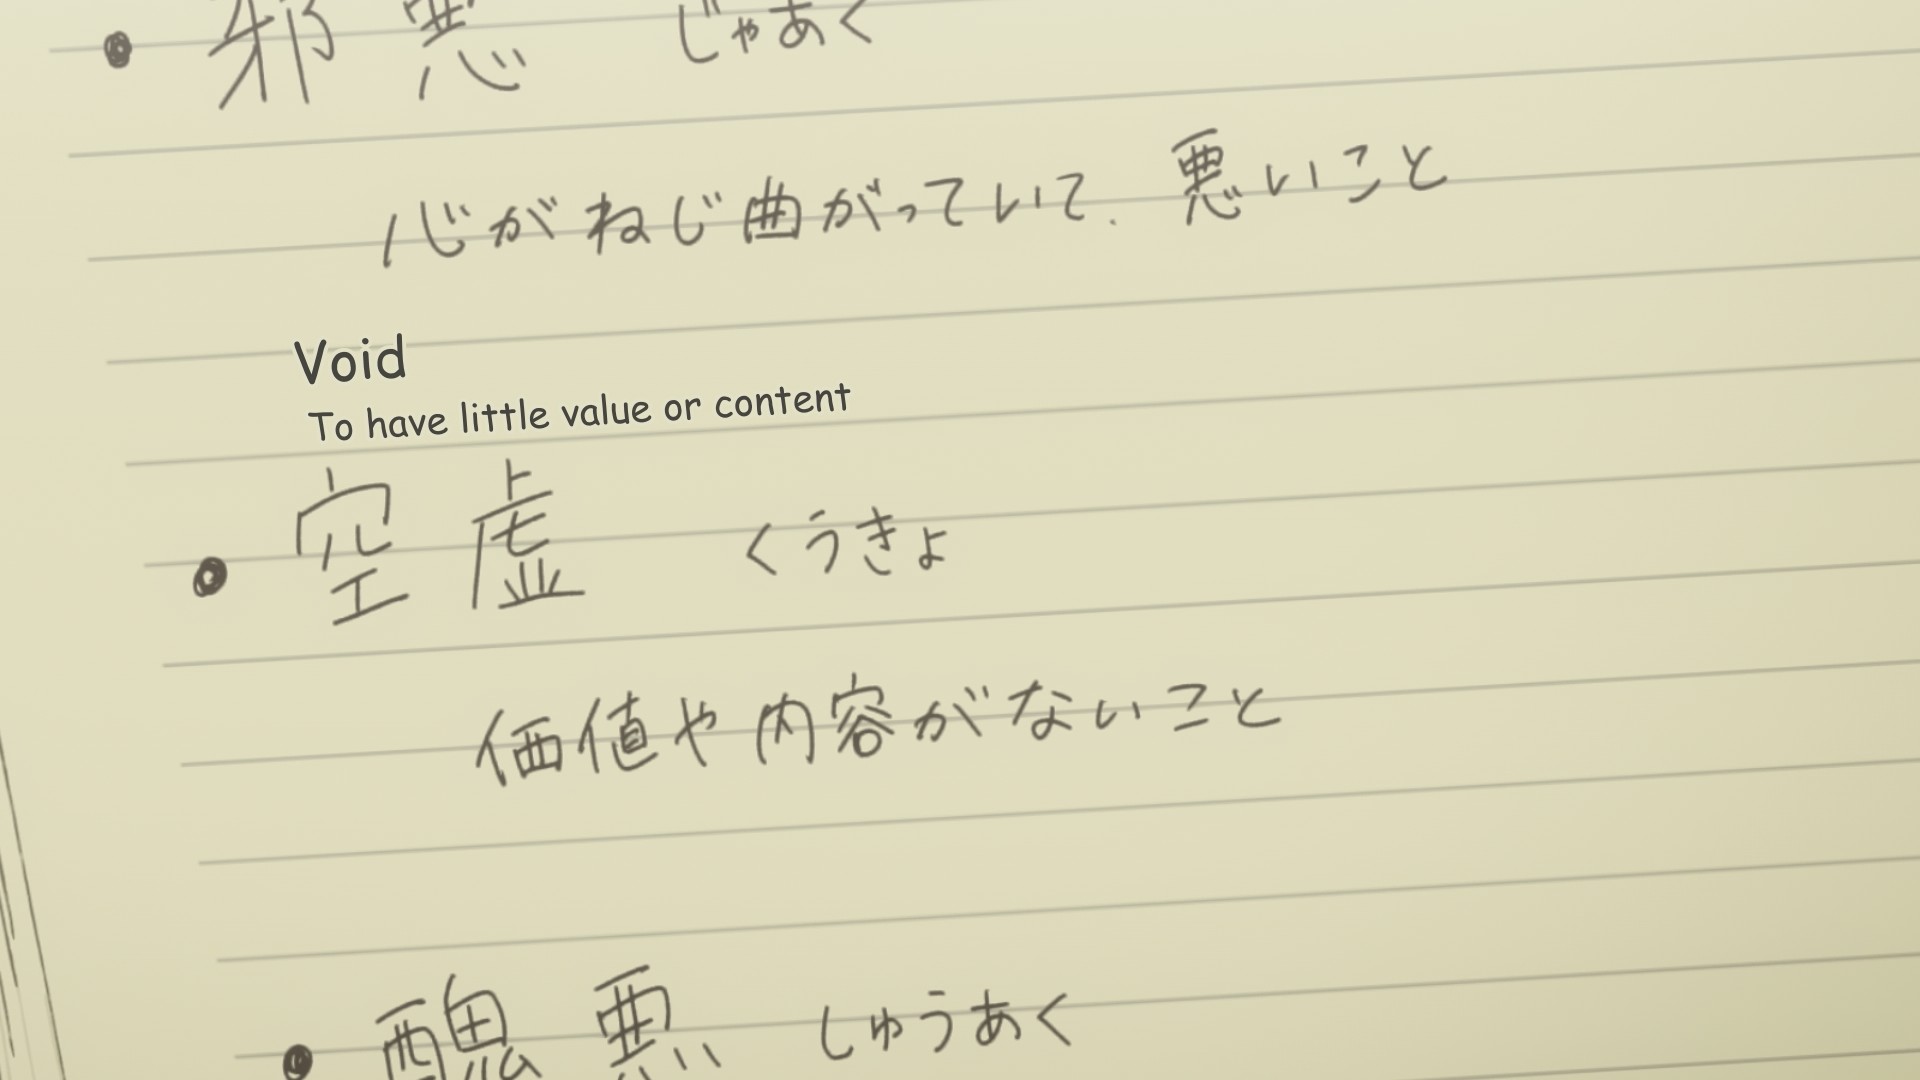 邪悪 じゃあく
心がねじ曲がっていて、悪いこと
Void
To have little value or content
空虚 くうきょ
価値や内容がないこと
醜悪 しゅうあく